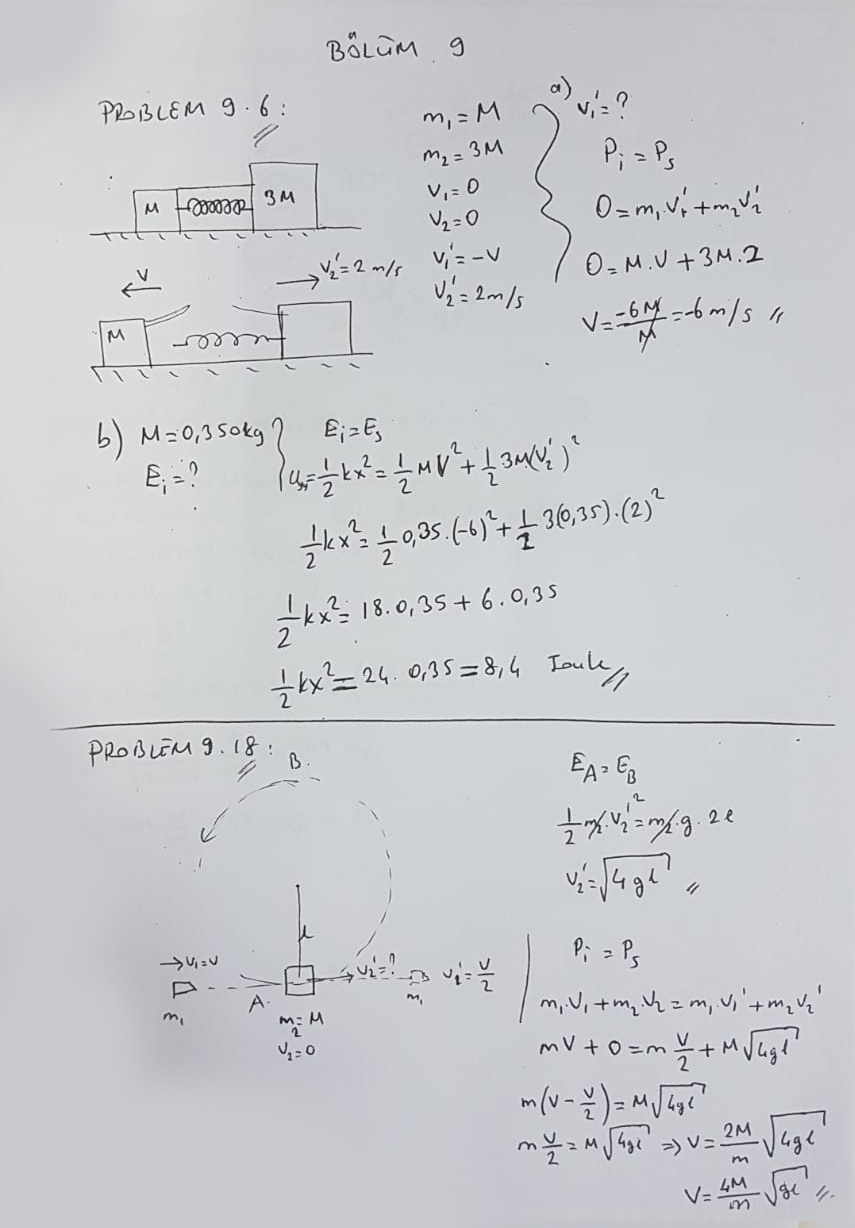 BÖLÜM 9
PROBLEM 9.6:
M
3M
V
V₂' = 2 m/s
M
m₁ = M
m₂ = 3M
V₁ = 0
V₂ = 0
V₁' = -V
V₂' = 2m/s
a) V₁' = ?
Pᵢ = Pₛ
0 = m₁.V₁' + m₂V₂'
0 = M.V + 3M.2
V = -6M/M = -6 m/s //
b) M = 0,350kg
Eᵢ = ?
Eᵢ = Eₛ
= 1/2 kx² = 1/2 MV² + 1/2 3M(V₂')²
1/2 kx² = 1/2 0,35.(-6)² + 1/2 3(0,35).(2)²
1/2 kx² = 18.0,35 + 6.0,35
1/2 kx² = 24.0,35 = 8,4 Joule //
PROBLEM 9.18:
B.
l
→V₁ = V
m₁
A.
m₂ = M
V₂ = 0
V₂' = ?
m₁
V₁' = V/2
E_A = E_B
1/2 m₂.V₂'² = m₂.g.2l
V₂' = √4gl //
Pᵢ = Pₛ
m₁.V₁ + m₂.V₂ = m₁.V₁' + m₂V₂'
mV + 0 = m V/2 + M√4gl
m(V - V/2) = M√4gl
m V/2 = M√4gl ⇒ V = 2M/m √4gl
V = 4M/m √gl //